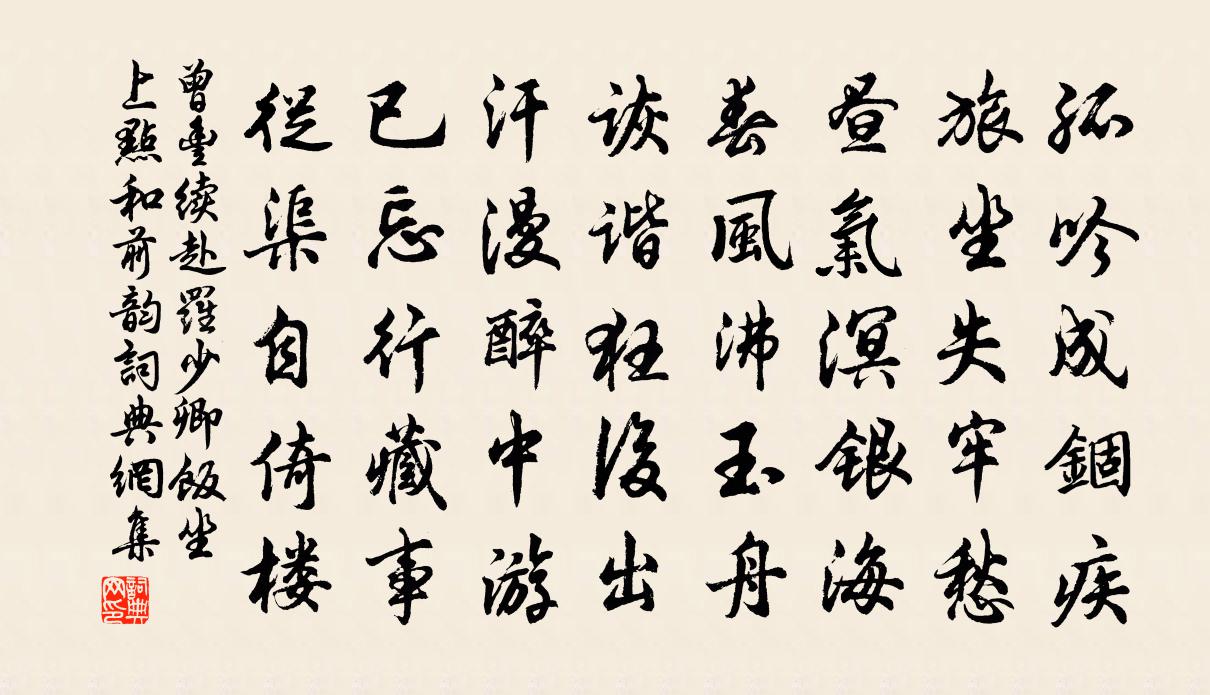 孤吟成錮疾
旅坐失牢愁
昼氣溟銀海
春風沸玉舟
詼谐狂後出
汗漫醉中游
已忘行藏事
從渠自倚楼
曾豊续赴羅少卿飯坐
上點和前韵詞典網集
詞典网印